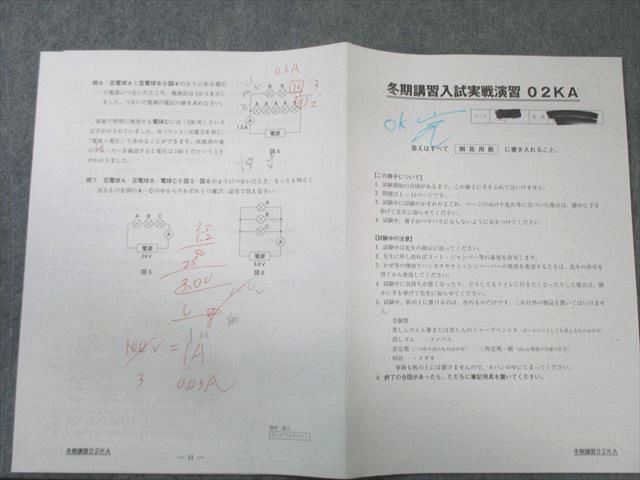 問6 豆電球Aと豆電球Bを図4のようにある電圧
の電源につないだところ、電流計は1.0Aを示し
ました。つないだ電源の電圧の値を求めなさい。
家庭で照明に使用する電球Cには「100W」という
文字が示されていました。W(ワット)は電力を表し、
「電流×電圧」で求めることができます。
かわかりました。
0.6A
B B
A A A A A
A
1.0A
電源
図4
問7 豆電球A・豆電球B・電球Cを図5・図6のようにつないだとき、もっとも明るく
光るものを図のA~Cの中からそれぞれ1つ選び、記号で答えなさい。
A B C
A
電源
24V
図5
A
B
C
A
電源
3.0V
図6
3.0V
C
100V = 1A
3 0.03A
冬期講習02KA
― 11 ―
冬期講習入試実戦演習 02KA
OK 完
答えはすべて 解答用紙 に書き入れること。
【この冊子について】
1. 試験開始の合図があるまで、この冊子に手をふれてはいけません。
2. 問題は1~11ページです。
3. 試験中に印刷のかすれやよごれ、ページのぬけや乱れ等に気づいた場合は、静かに手を
挙げて先生に知らせてください。
4. 試験中、冊子がバラバラにならないように気をつけてください。
【試験中の注意】
1. 試験中は先生の指示に従ってください。
2. 先生に申し出ればコート・ジャンパー等の着用を許可します。
3. かぜ等の理由でハンカチやティッシュペーパーの使用を希望するときは、先生の許可を
得てから使用してください。
4. 試験中に気持ちが悪くなったり、どうしてもトイレに行きたくなったりした場合は、静
かに手を挙げて先生に知らせてください。
5. 試験中、机の上に置けるのは、次のものだけです。これ以外の物品を置いてはいけませ
ん。
・受験票
・黒しんのえん筆または黒しんのシャープペンシル
・消しゴム ・コンパス
・直定規 ・三角定規一組
・時計 ・メガネ
筆箱も机の上には置けませんので、カバンの中にしまってください。
6. 終了の合図があったら、ただちに筆記用具を置いてください。
冬期講習02KA